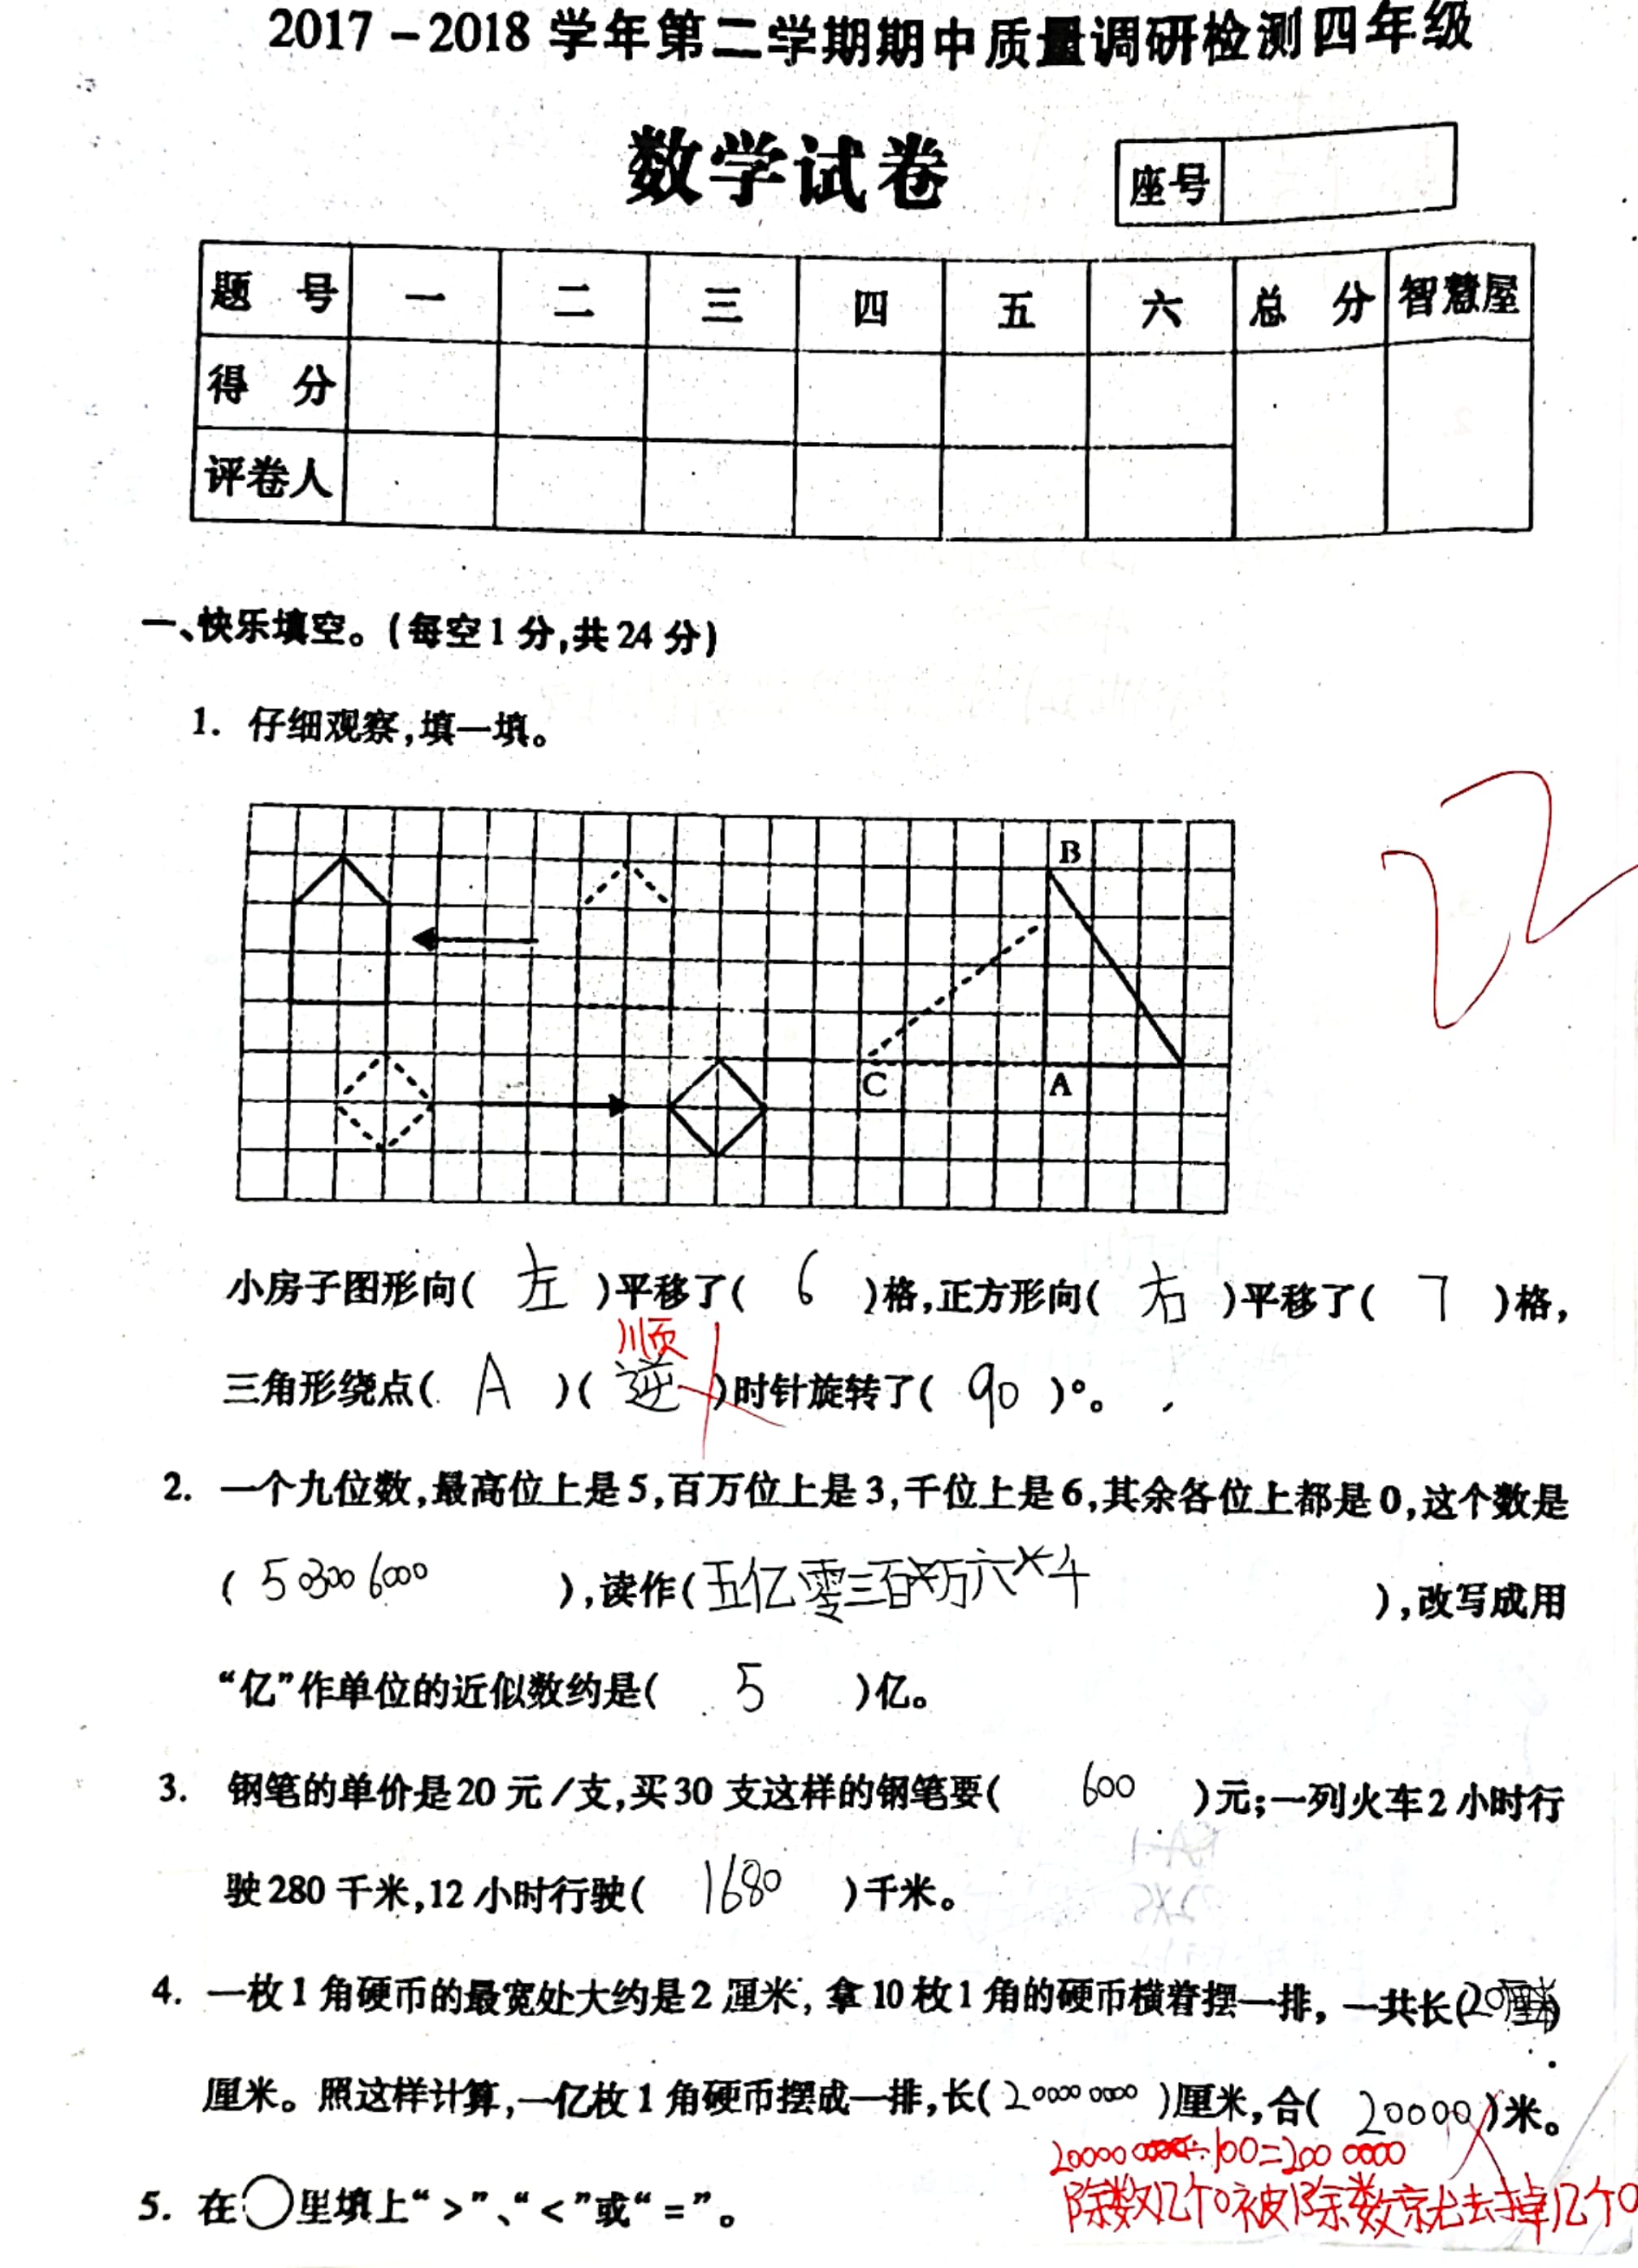 2017-2018学年第二学期期中质量调研检测四年级
数学试卷
座号
题 号 一 二 三 四 五 六 总 分 智慧屋
得 分
评卷人
一、快乐填空。(每空1分,共24分)
1. 仔细观察,填一填。
22
B
C A
小房子图形向( 左 )平移了( 6 )格,正方形向( 右 )平移了( 7 )格,
顺
三角形绕点( A )( 逆 )时针旋转了( 90 )°。
2. 一个九位数,最高位上是5,百万位上是3,千位上是6,其余各位上都是0,这个数是
( 503006000 ),读作( 五亿零三百万六千 ),改写成用
“亿”作单位的近似数约是( 5 )亿。
3. 钢笔的单价是20元/支,买30支这样的钢笔要( 600 )元;一列火车2小时行
驶280千米,12小时行驶( 1680 )千米。
4. 一枚1角硬币的最宽处大约是2厘米,拿10枚1角的硬币横着摆一排,一共长(20)
厘米。照这样计算,一亿枚1角硬币摆成一排,长( 200000000 )厘米,合( 20000 )米。
200000000÷100=2000000
5. 在○里填上“>”、“<”或“=”。
除数几个0被除数就去掉几个0